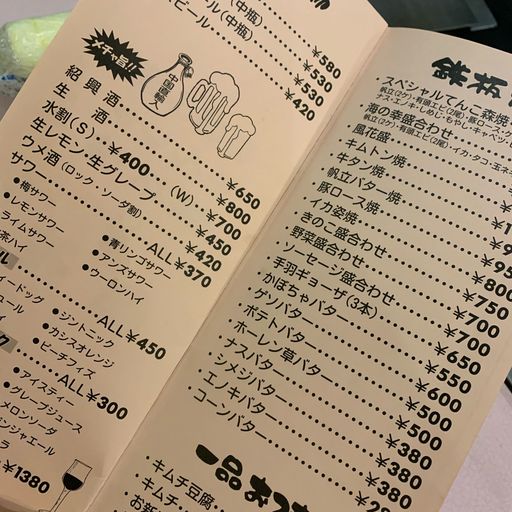 (中瓶)
ール(中瓶)
ビール
¥580
¥530
¥530
¥420
中国直輸
紹興酒 ¥650
生酒 ¥800
水割(S) ¥400・(W) ¥700
生レモン・生グレープ ¥450
ウメ酒(ロック・ソーダ割) ¥420
サワー ALL¥370
●梅サワー ●青リンゴサワー
●レモンサワー ●アンズサワー
ライムサワー ●ウーロンハイ
茶ハイ
ル ALL¥450
ードッグ ●ジントニック
ュール ●カシスオレンジ
ハイ ●ピーチフィズ
ク ALL¥300
●アイスティー
●グレープジュース
メロンソーダ
ジンジャエール
ラ
¥1380
鉄板
・スペシャルてんこ森焼
帆立(2ケ)・有頭エビ(2尾)・豚ロース・ゲ
ナス・エノキ・しめじ・もやし・キャベツ
・海の幸盛合わせ
帆立(2ケ)・有頭エビ(2尾)・イカ・タコ・玉ネ
・風花盛
・キムトン焼
・牛タン焼
・帆立バター焼
・豚ロース焼
・イカ姿焼
・きのこ盛合わせ
・野菜盛合わせ
・ソーセージ盛合わせ
・手羽ギョーザ(3本)
・かぼちゃバター
・ゲソバター
・ポテトバター
・ホーレン草バター
・ナスバター
・シメジバター
・エノキバター
・コーンバター
¥800
¥750
¥700
¥700
¥650
¥550
¥600
¥500
¥500
¥380
¥380
一品おつ
・キムチ豆腐
・キムチ
・お新